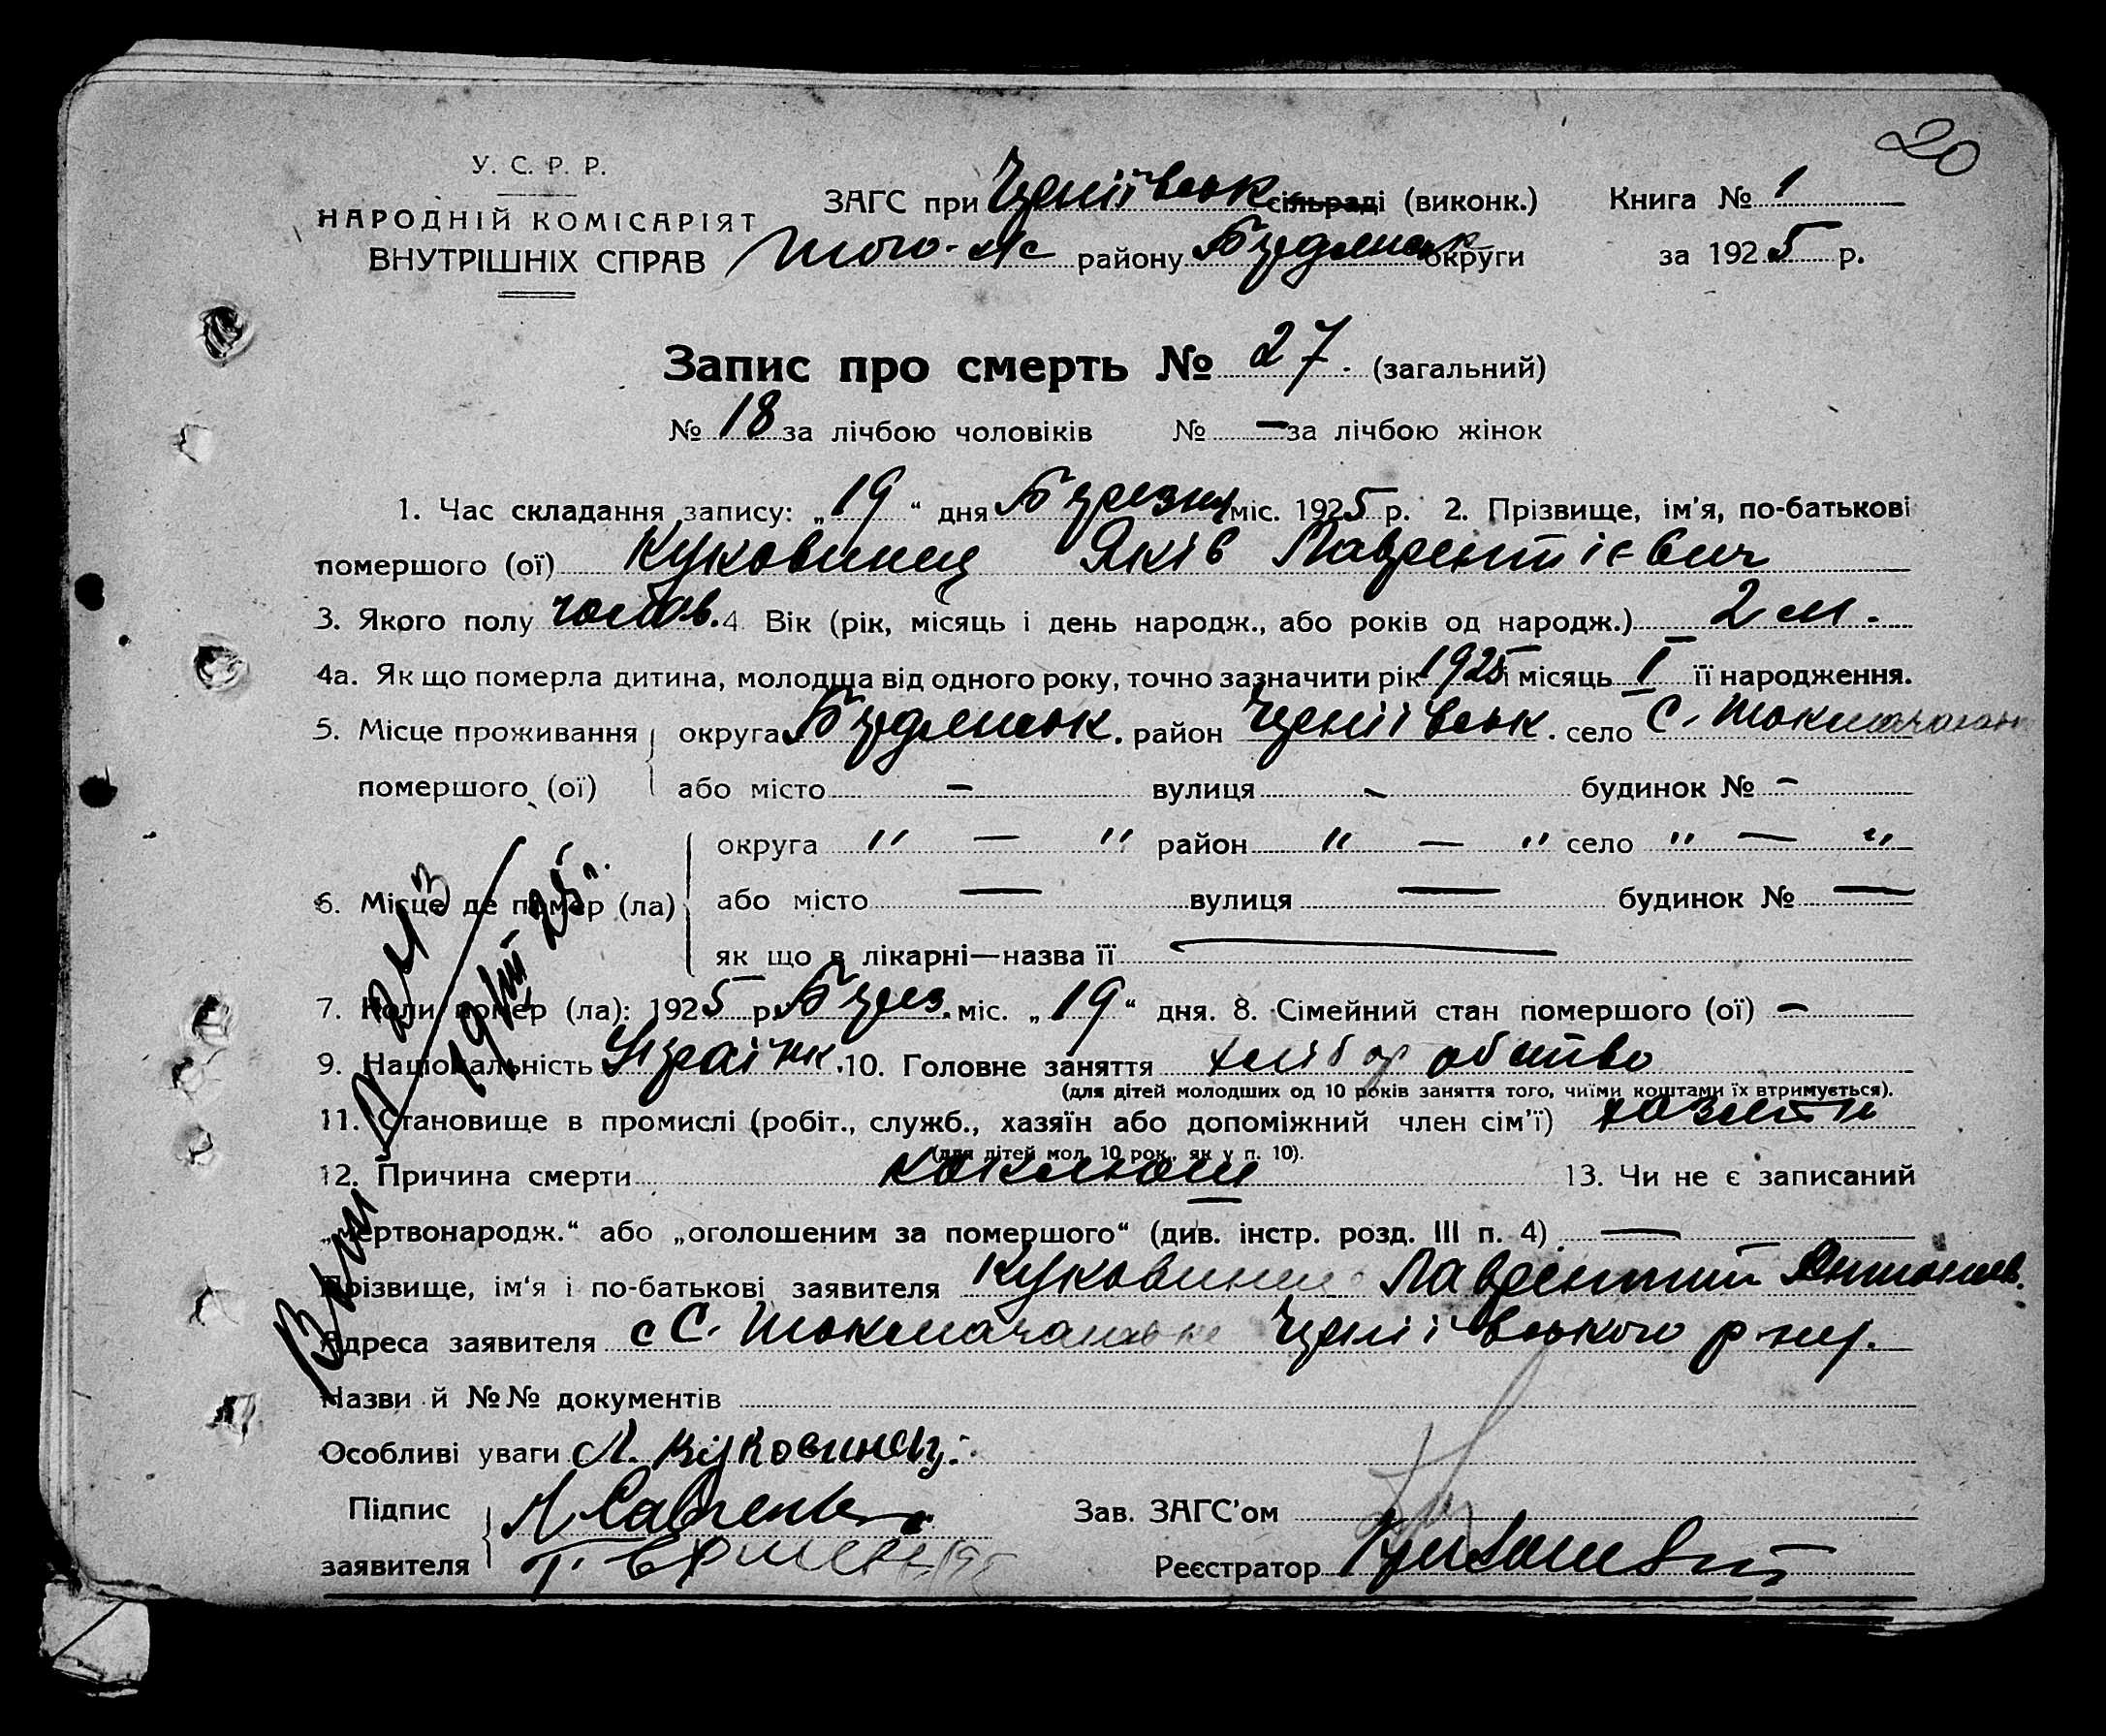 20
У. С. Р. Р.
НАРОДНІЙ КОМІСАРІЯТ
ВНУТРІШНІХ СПРАВ
ЗАГС при Чернііївськ сільраді (виконк.) Книга № 1
того-ж району Бердянськ округи за 1925 р.
Запис про смерть № 27. (загальний)
№ 18 за лічбою чоловіків № — за лічбою жінок
1. Час складання запису: „19“ дня Березня міс. 1925 р. 2. Прізвище, ім'я, по-батькові
помершого (ої) Куковинец Яків Лаврентієвич
3. Якого полу чолов. 4. Вік (рік, місяць і день народж., або років од народж.) 2 м.
4а. Як що померла дитина, молодща від одного року, точно зазначити рік 1925 і місяць I її народження.
5. Місце проживання округа Бердянськ. район Черніївськ. село С. Токмачанськ
помершого (ої) або місто — вулиця — будинок № —
6. Місце де помер (ла) округа " — " район " — " село " — "
або місто — вулиця — будинок № —
як що в лікарні—назва її —
7. Коли помер (ла): 1925 р. Берез. міс. „19“ дня. 8. Сімейний стан помершого (ої) —
9. Національність Україн. 10. Головне заняття хліборобство
(для дітей молодших од 10 років заняття того, чиїми коштами їх втримується).
11. Становище в промислі (робіт., служб., хазяїн або допоміжний член сім'ї) хозяїн
(для дітей мол. 10 рок., як у п. 10).
12. Причина смерти коклюш 13. Чи не є записаний
„мертвонародж.“ або „оголошеним за помершого“ (див. інстр. розд. III п. 4) —
Прізвище, ім'я і по-батькові заявителя Куковинец Лаврентий Антонов.
Адреса заявителя с С. Токмачанське Черніївського р-ну.
Назви й №№ документів
Особливі уваги Л. Куковинец.
Підпис
заявителя
Зав. ЗАГС'ом
Реєстратор
19/III 25 р.